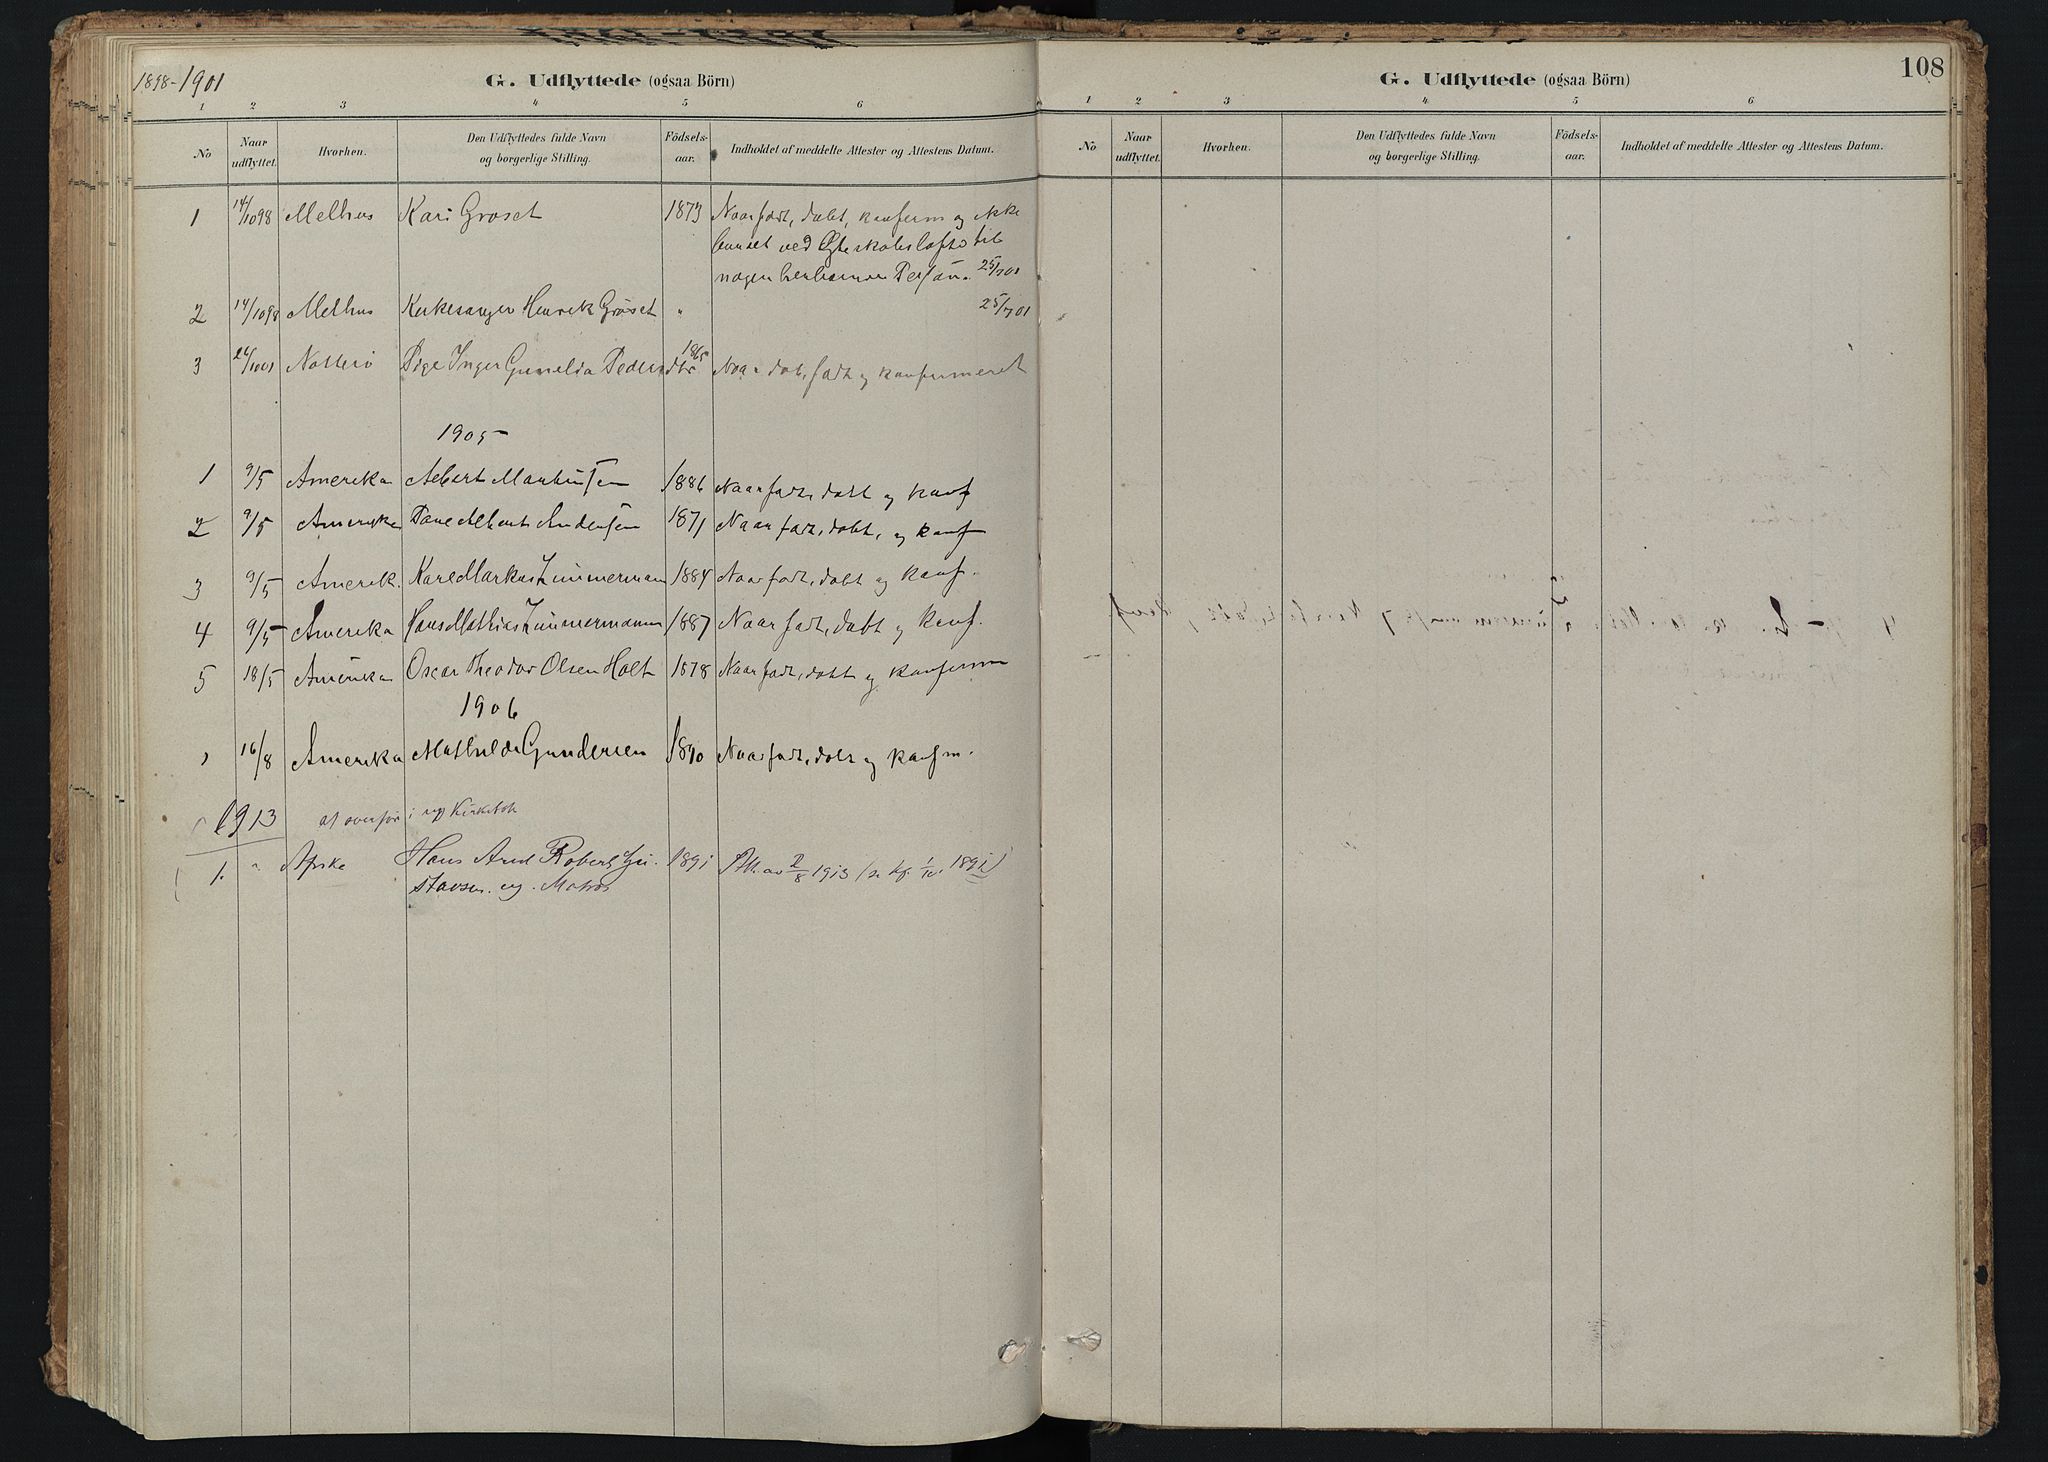 1898-1901
G. Udflyttede (ogsaa Börn)
1 2 3 4 5 6
No
Naar udflyttet.
Hvorhen.
Den Udflyttedes fulde Navn og borgerlige Stilling.
Födselsaar.
Indholdet af meddelte Attester og Attestens Datum.
1 14/10 98 Melhus Kari Grøset 1873 Naar født, døbt, konferm og ikke
bundet ved Ægteskabsløfte til
nogen herhørende Person. 25/7 01
2 14/10 98 Melhus Kirkesanger Henrik Grøset " 25/7 01
3 24/10 01 Nøtterö Pige Inger Gunelia Pedersdtr 1865 Naar døbt, født og konfermeret
1905
1 9/5 Amerika Albert Martinsen 1886 Naar født, døbt og konf
2 9/5 Amerika Albert Andersen 1871 Naar født, døbt, og konf
3 9/5 Amerik. Karl Markus Zimmermann 1884 Naar født, døbt og konf.
4 9/5 Amerika Hans Mathias Zimmermann 1887 Naar født, døbt og konf.
5 18/5 Amerika Oscar Theodor Olsen Holt 1878 Naar født, døbt og konferm
1906
1 16/8 Amerika Mathilde Gundersen 1890 Naar født, døbt og konfm.
1913 at overføre i ny Kirkebok
1. " Hans Robert Gu-
stavsen. ug. Matros 1891 Att. av 2/8 1913 1891
G. Udflyttede (ogsaa Börn)
108
1 2 3 4 5 6
No
Naar udflyttet.
Hvorhen.
Den Udflyttedes fulde Navn og borgerlige Stilling.
Födselsaar.
Indholdet af meddelte Attester og Attestens Datum.